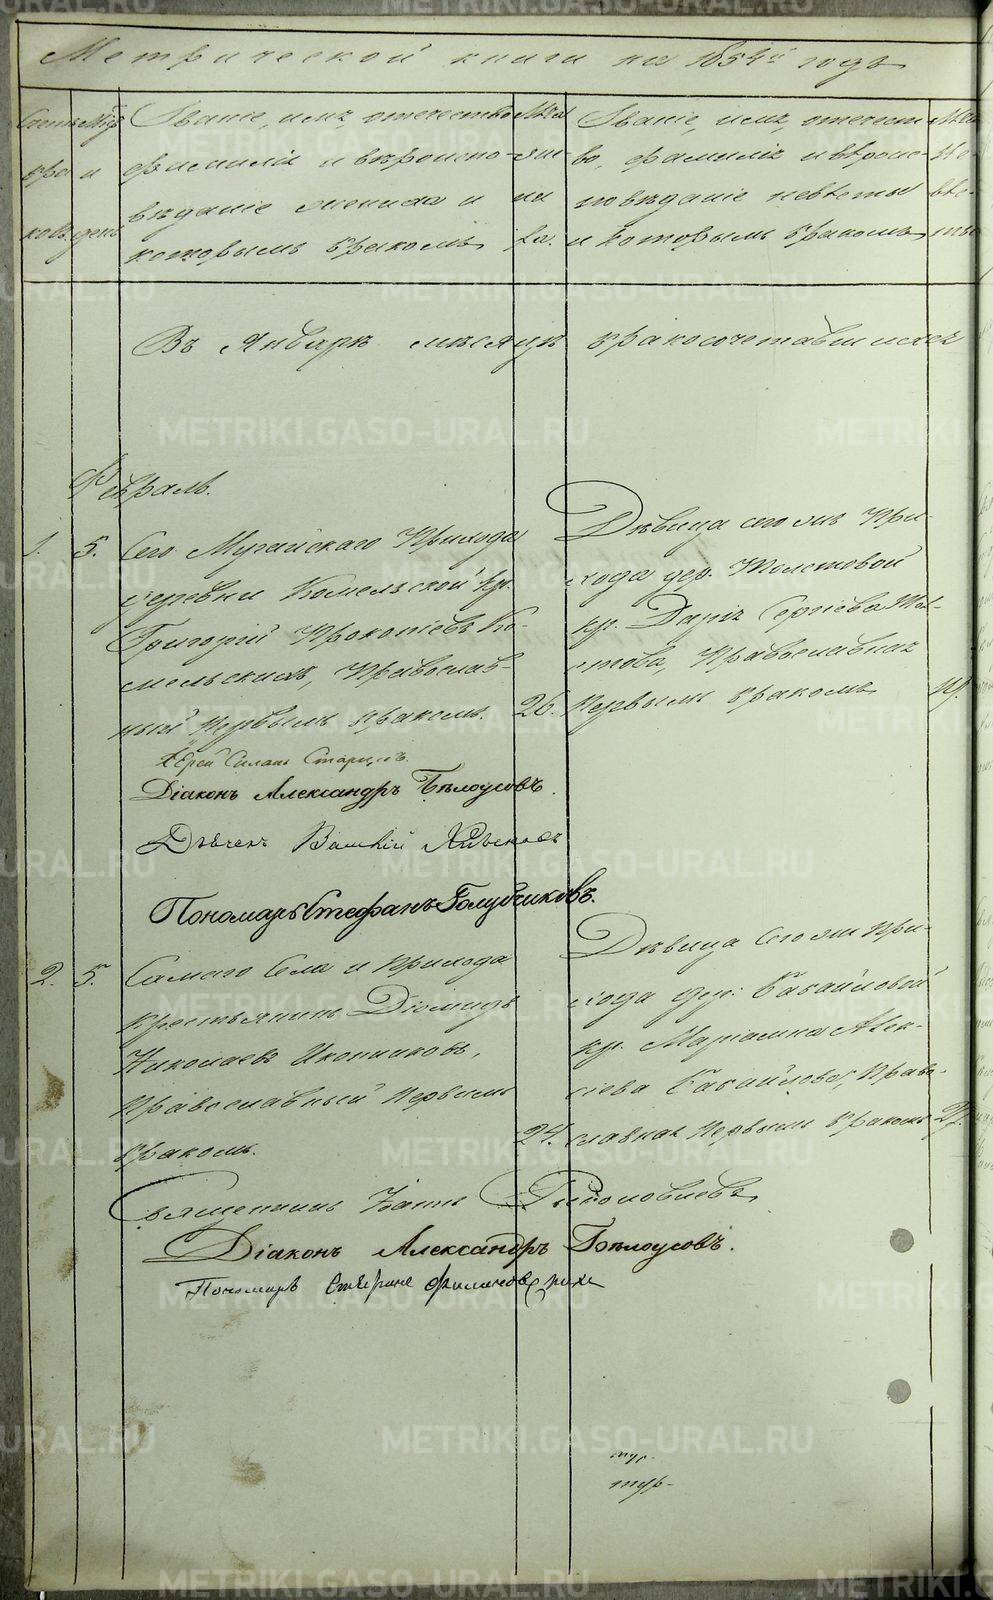 Метрической книги на 1854й годъ
Счетъ браковъ
Мѣс. и день
Званіе, имя, отечество,
фамилія и вѣроиспо-
вѣданіе жениха и
которымъ бракомъ
Лѣта
жени
ха.
Званіе, имя, отечест-
во, фамилія и вѣроис-
повѣданіе невѣсты
и которымъ бракомъ
Лѣта
не
вѣс-
ты
Въ Январѣ мѣсяцѣ бракосочетавшихся
Февраль.
1. 5. Сего Мугайскаго Прихода
деревни Комельской Кр.
Григорій Прокопіевъ Ко-
мельскихъ, Православ-
ный первымъ бракомъ. 26.
Дѣвица сего же При-
хода дер. Толстовой
кр. Дарія Сергіева Тол-
стова, Православная
первымъ бракомъ
Іерей Силанъ Старцевъ.
Діаконъ Александръ Бѣлоусовъ.
Дьячекъ
Пономарь Стефанъ Голубчиковъ.
2. 5. Самаго Села и прихода
крестьянинъ Діомидъ
Николаевъ Иконниковъ,
православный первымъ
бракомъ. 24.
Дѣвица Сего же При-
хода дер. Бабайловой
кр. Маріамна Алек-
сіева Бабайлова, Право-
славная первымъ бракомъ
Священникъ
Діаконъ Александръ Бѣлоусовъ.
Пономарь
METRIKI.GASO-URAL.RU